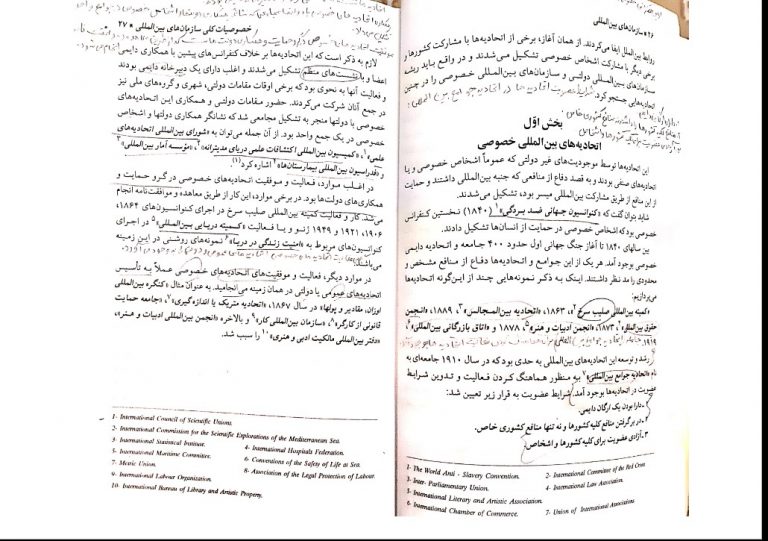 ۲۶ * سازمان‌های بین‌المللی
روابط بین‌الملل ایفا می‌کردند. از همان آغاز، برخی از اتحادیه‌ها با مشارکت کشورها و
برخی دیگر با مشارکت اشخاص خصوصی تشکیل می‌شدند و در واقع باید ریشه
سازمان‌های بین‌المللی دولتی و سازمان‌های بین‌المللی خصوصی را در چنین
اتحادیه‌هایی جستجو کرد.
بخش اوّل
اتحادیه‌های بین‌المللی خصوصی
این اتحادیه‌ها توسط موجودیت‌های غیر دولتی که عموماً اشخاص خصوصی و یا
اتحادیه‌های صنفی بودند و به قصد دفاع از منافعی که جنبه بین‌المللی داشتند و حمایت
از این منافع از طریق مشارکت بین‌المللی میسر بود، تشکیل می‌شدند.
شاید بتوان گفت که «کنوانسیون جهانی ضد بردگی»۱ (۱۸۴۰) نخستین کنفرانس
خصوصی بود که اشخاص خصوصی در حمایت از انسان‌ها تشکیل دادند.
بین سالهای ۱۸۴۰ تا آغاز جنگ جهانی اول حدود ۴۰۰ جامعه و اتحادیه دایمی
خصوصی بوجود آمد. هر یک از این جوامع و اتحادیه‌ها دفاع از منافع مشخص و
محدودی را مد نظر داشتند. اینک به ذکر نمونه‌هایی چند از این‌گونه اتحادیه‌ها
می‌پردازیم:
«کمیته بین‌المللی صلیب سرخ»۲، ۱۸۶۳، «اتحادیه بین‌المجالس»۳، ۱۸۸۹، «انجمن
حقوق بین‌الملل»۴، ۱۸۷۳، «انجمن ادبیات و هنر»۵، ۱۸۷۸ و «اتاق بازرگانی بین‌المللی»۶،
۱۹۱۹
رشد و توسعه این اتحادیه‌های بین‌المللی به حدی بود که در سال ۱۹۱۰ جامعه‌ای به
نام «اتحادیه جوامع بین‌المللی»۷ به منظور هماهنگ کردن فعالیت و تدوین شرایط
عضویت در اتحادیه‌ها بوجود آمد. شرایط عضویت به قرار زیر تعیین شد:
۱. دارا بودن یک ارگان دایمی.
۲. در بر گرفتن منافع کلیه کشورها و نه تنها منافع کشوری خاص.
۳. آزادی عضویت برای کلیه کشورها و اشخاص.
1- The World Anti - Slavery Convention.
2- International Committee of the Red Cross
3- Inter- Parliamentary Union.
4- International Law Association.
5- International Literary and Artistic Association.
6- International Chamber of Commerce.
7- Union of International Associations
خصوصیات کلی سازمان‌های بین‌المللی * ۲۷
لازم به ذکر است که این اتحادیه‌ها بر خلاف کنفرانس‌های پیشین با همکاری دایمی
اعضا و با نشست‌های منظم تشکیل می‌شدند و اغلب دارای یک دبیرخانه دایمی بودند
و فعالیت آنها به نحوی بود که برخی اوقات مقامات دولتی، شهری و گروه‌های ملی نیز
در جمع آنان شرکت می‌کردند. حضور مقامات دولتی و همکاری این اتحادیه‌های
خصوصی با دولتها منجر به تشکیل مجامعی شد که نشانگر همکاری دولتها و اشخاص
خصوصی در یک جمع واحد بود. از آن جمله می‌توان به «شورای بین‌المللی اتحادیه‌های
علمی»۱، «کمیسیون بین‌المللی اکتشافات علمی دریای مدیترانه»۲، «مؤسسه آمار بین‌المللی»۳
و «فدراسیون بین‌المللی بیمارستان‌ها»۴ اشاره کرد.(۱)
در اغلب موارد، فعالیت و موفقیت اتحادیه‌های خصوصی در گرو حمایت و
همکاری‌های دولت‌ها بود. در برخی موارد، این کار از طریق معاهده و موافقت‌نامه انجام
می‌شد. کار و فعالیت کمیته بین‌المللی صلیب سرخ در اجرای کنوانسیون‌های ۱۸۶۴،
۱۹۰۶، ۱۹۲۱ و ۱۹۴۹ ژنو و یا فعالیت «کمیته دریایی بین‌المللی»۵ در اجرای
کنوانسیون‌های مربوط به «امنیت زندگی در دریا»۶ نمونه‌های روشنی در این زمینه
می‌باشند.
در موارد دیگر، فعالیت و موفقیت‌های اتحادیه‌های خصوصی عملاً به تأسیس
اتحادیه‌های عمومی یا دولتی در همان زمینه می‌انجامید. به عنوان مثال «کنگره بین‌المللی
اوزان، مقادیر و پولها» در سال ۱۸۶۷، «اتحادیه متریک یا اندازه‌گیری»۷، «جامعه حمایت
قانونی از کارگر»۸، «سازمان بین‌المللی کار»۹ و بالاخره «انجمن بین‌المللی ادبیات و هنر»،
«دفتر بین‌المللی مالکیت ادبی و هنری»۱۰ را سبب شد.
1- International Council of Scientific Unions.
2- International Commission for the Scientific Explorations of the Mediterranean Sea.
3- International Statistical Institute.
4- International Hospitals Federation.
5- International Maritime Committee.
6- Conventions of the Safety of Life at Sea.
7- Metric Union.
8- Association of the Legal Protection of Labour.
9- International Labour Organization.
10- International Bureau of Library and Artistic Property.